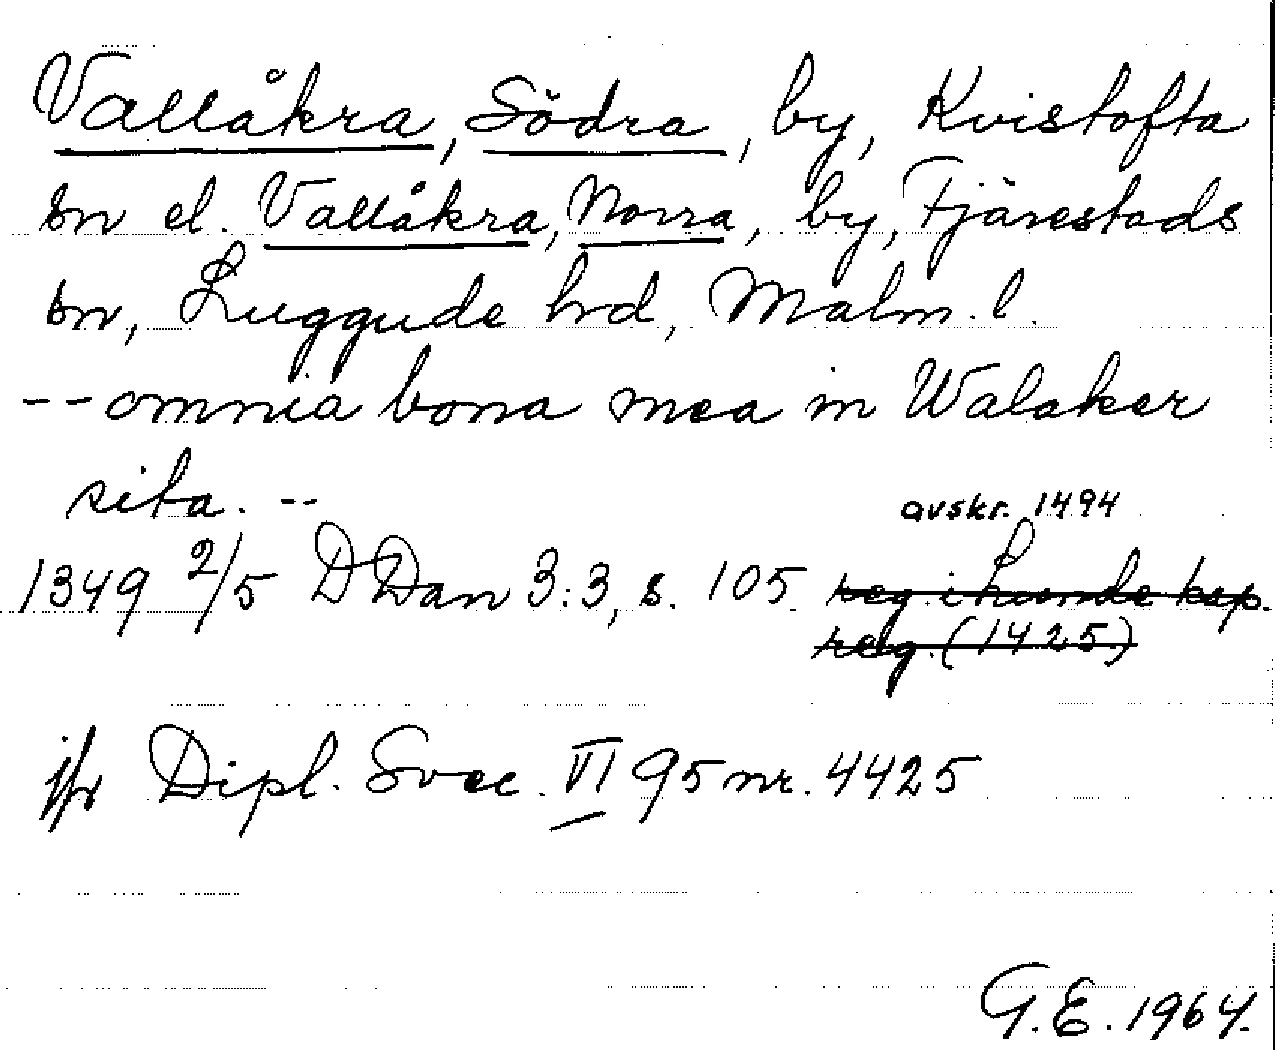 Vallåkra, Södra, by, Kvistofta
sn el. Vallåkra, Norra, by, Fjärestads
sn, Luggude hrd, Malm. l.
-- omnia bona mea in Walaker
sita. --
avskr. 1494
1349 2/5 DDan 3:3, s. 105 reg. i Lunde kap.
reg. (1425)
jfr Dipl. Svec. VI 95 nr. 4425
G.E. 1964.